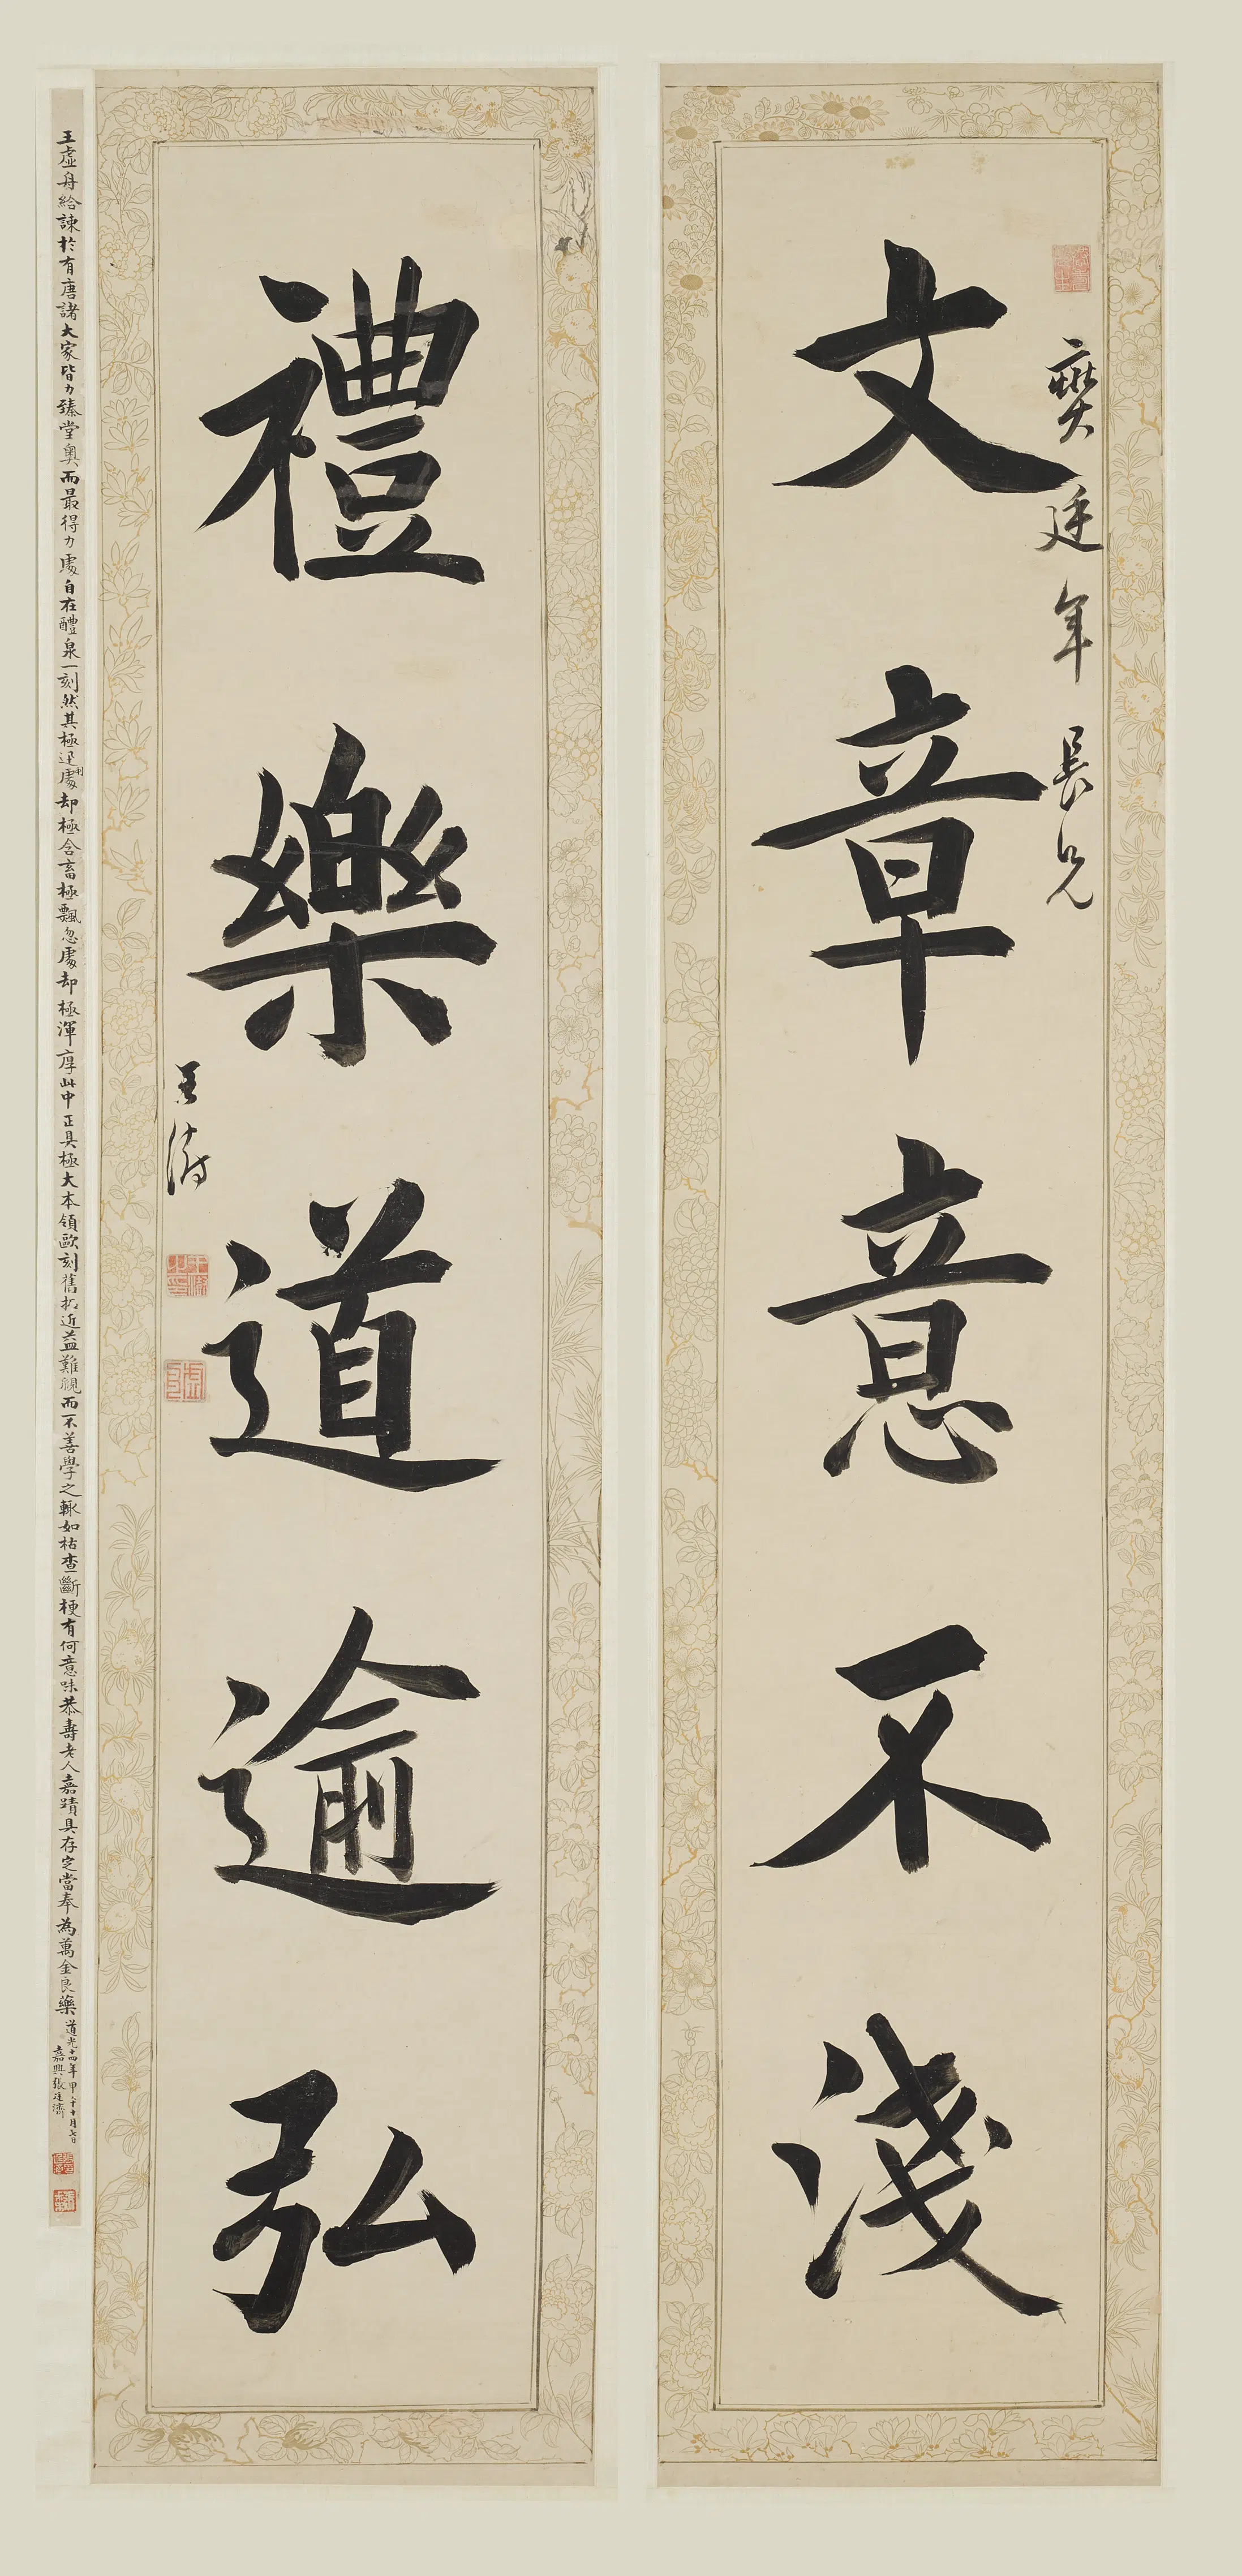 文章意不淺
廷年長兄
禮樂道逾弘
王澍
王虛舟給諫於有唐諸大家皆力臻堂奧而最得力處自在醴泉一刻然其極迅利處却極含畜極飄忽處却極渾厚此中正具極大本領歐刻舊拓近益難覯而不善學之輒如枯查斷梗有何意味恭壽老人嘉蹟具存定當奉為萬金良藥
道光十四年甲午十月七日
嘉興張廷濟